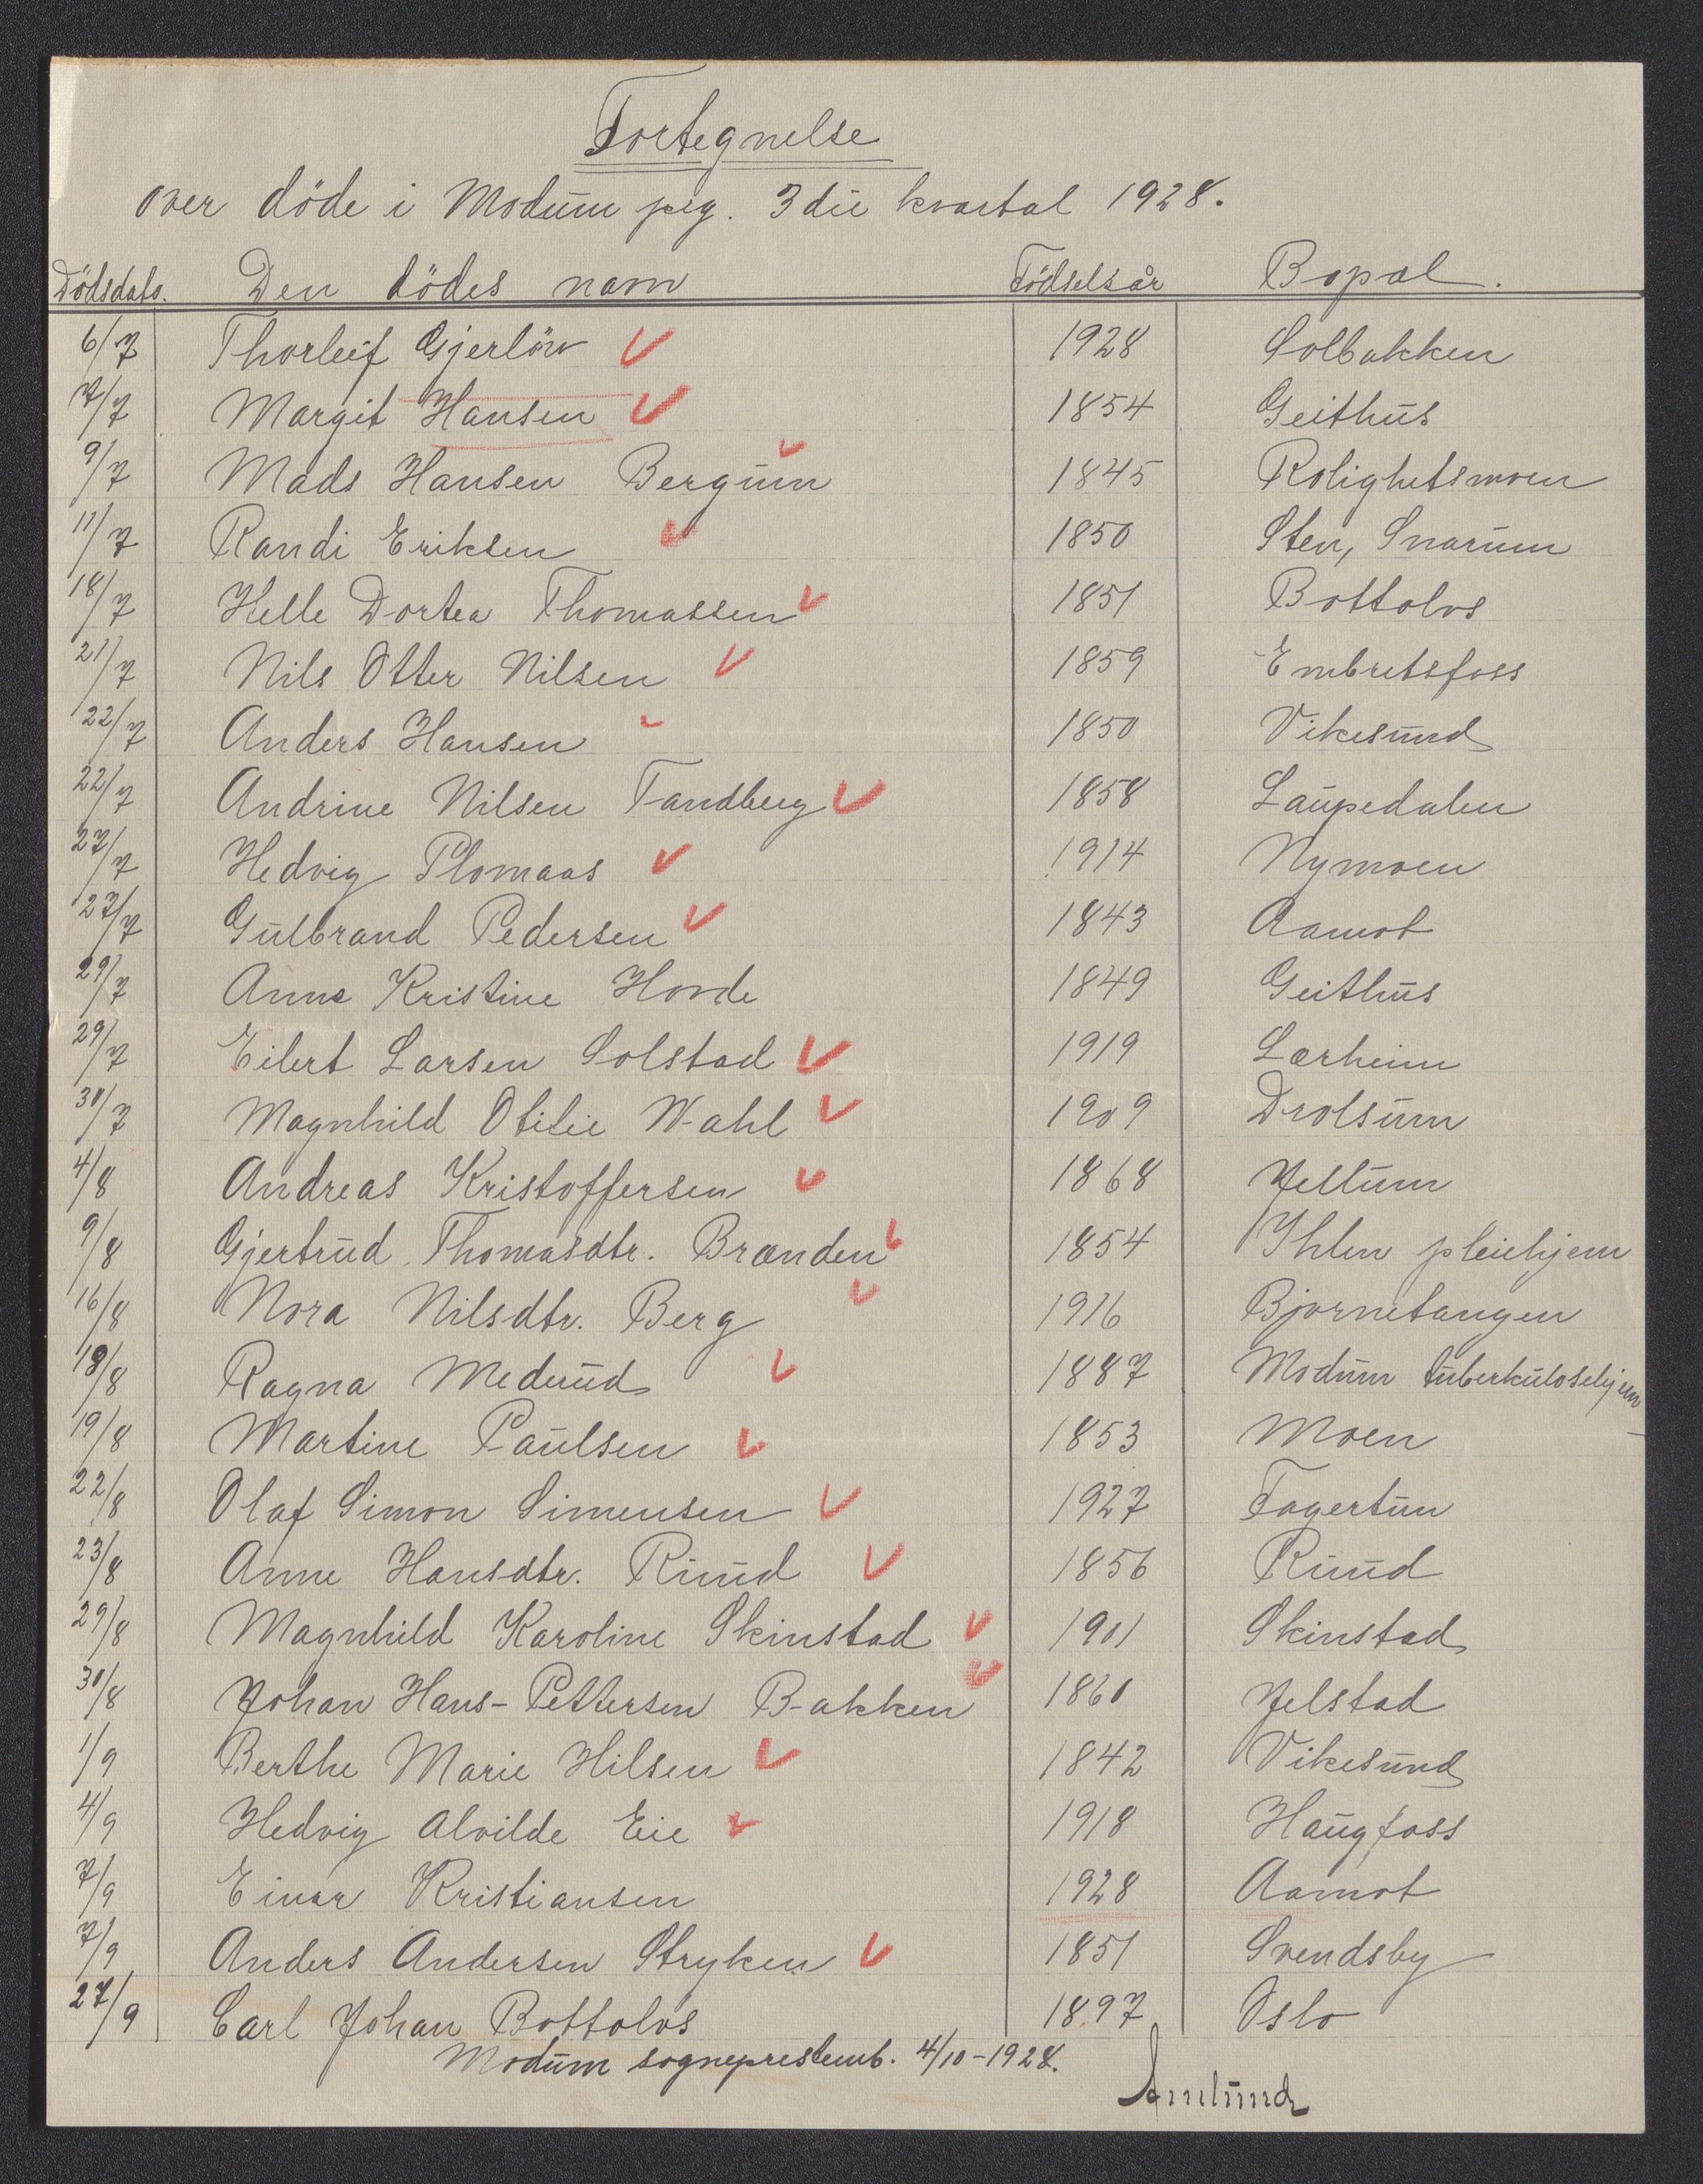 Fortegnelse
over döde i Modum pgj. 3die kvartal 1928.
Dödsdato. Den dödes navn Födselsår Bopæl.
6/7 Thorleif Gjerlöw 1928 Solbakken
7/7 Margit Hansen 1854 Geithus
9/7 Mads Hansen Bergum 1845 Rolighetsmoen
11/7 Randi Eriksen 1850 Sten, Snarum
18/7 Helle Dortea Thomassen 1851 Bottolvs
21/7 Nils Otter Nilsen 1859 Embretsfoss
22/7 Anders Hansen 1850 Vikesund
22/7 Andrine Nilsen Tandberg 1858 Laupedalen
27/7 Hedvig Plomaas 1914 Nymoen
27/7 Gulbrand Pedersen 1843 Aamot
29/7 Anne Kristine Hovde 1849 Geithus
29/7 Eilert Larsen Solstad 1919 Lærheim
30/7 Magnhild Otilie Wahl 1909 Drolsum
4/8 Andreas Kristoffersen 1868 Jellum
9/8 Gjertrud Thomasdtr. Brænden 1854 Ihlen pleiehjem
16/8 Nora Nilsdtr. Berg 1916 Bjørnetangen
18/8 Ragna Medrud 1887 Modum tuberkulosehjem
19/8 Martine Paulsen 1853 Moen
22/8 Olaf Simon Simensen 1927 Fagertun
23/8 Anne Hansdtr. Ruud 1856 Ruud
29/8 Magnhild Karoline Skinstad 1901 Skinstad
30/8 Johan Hans-Pettersen Bakken 1860 Jelstad
1/9 Berthe Marie Hilsen 1842 Vikesund
4/9 Hedvig Alvilde Eie 1918 Haugfoss
7/9 Einar Kristiansen 1928 Aamot
7/9 Anders Andersen Stryken 1851 Svendsby
27/9 Carl Johan Bottolvs 1897 Oslo
Modum sogneprestemb. 4/10-1928.